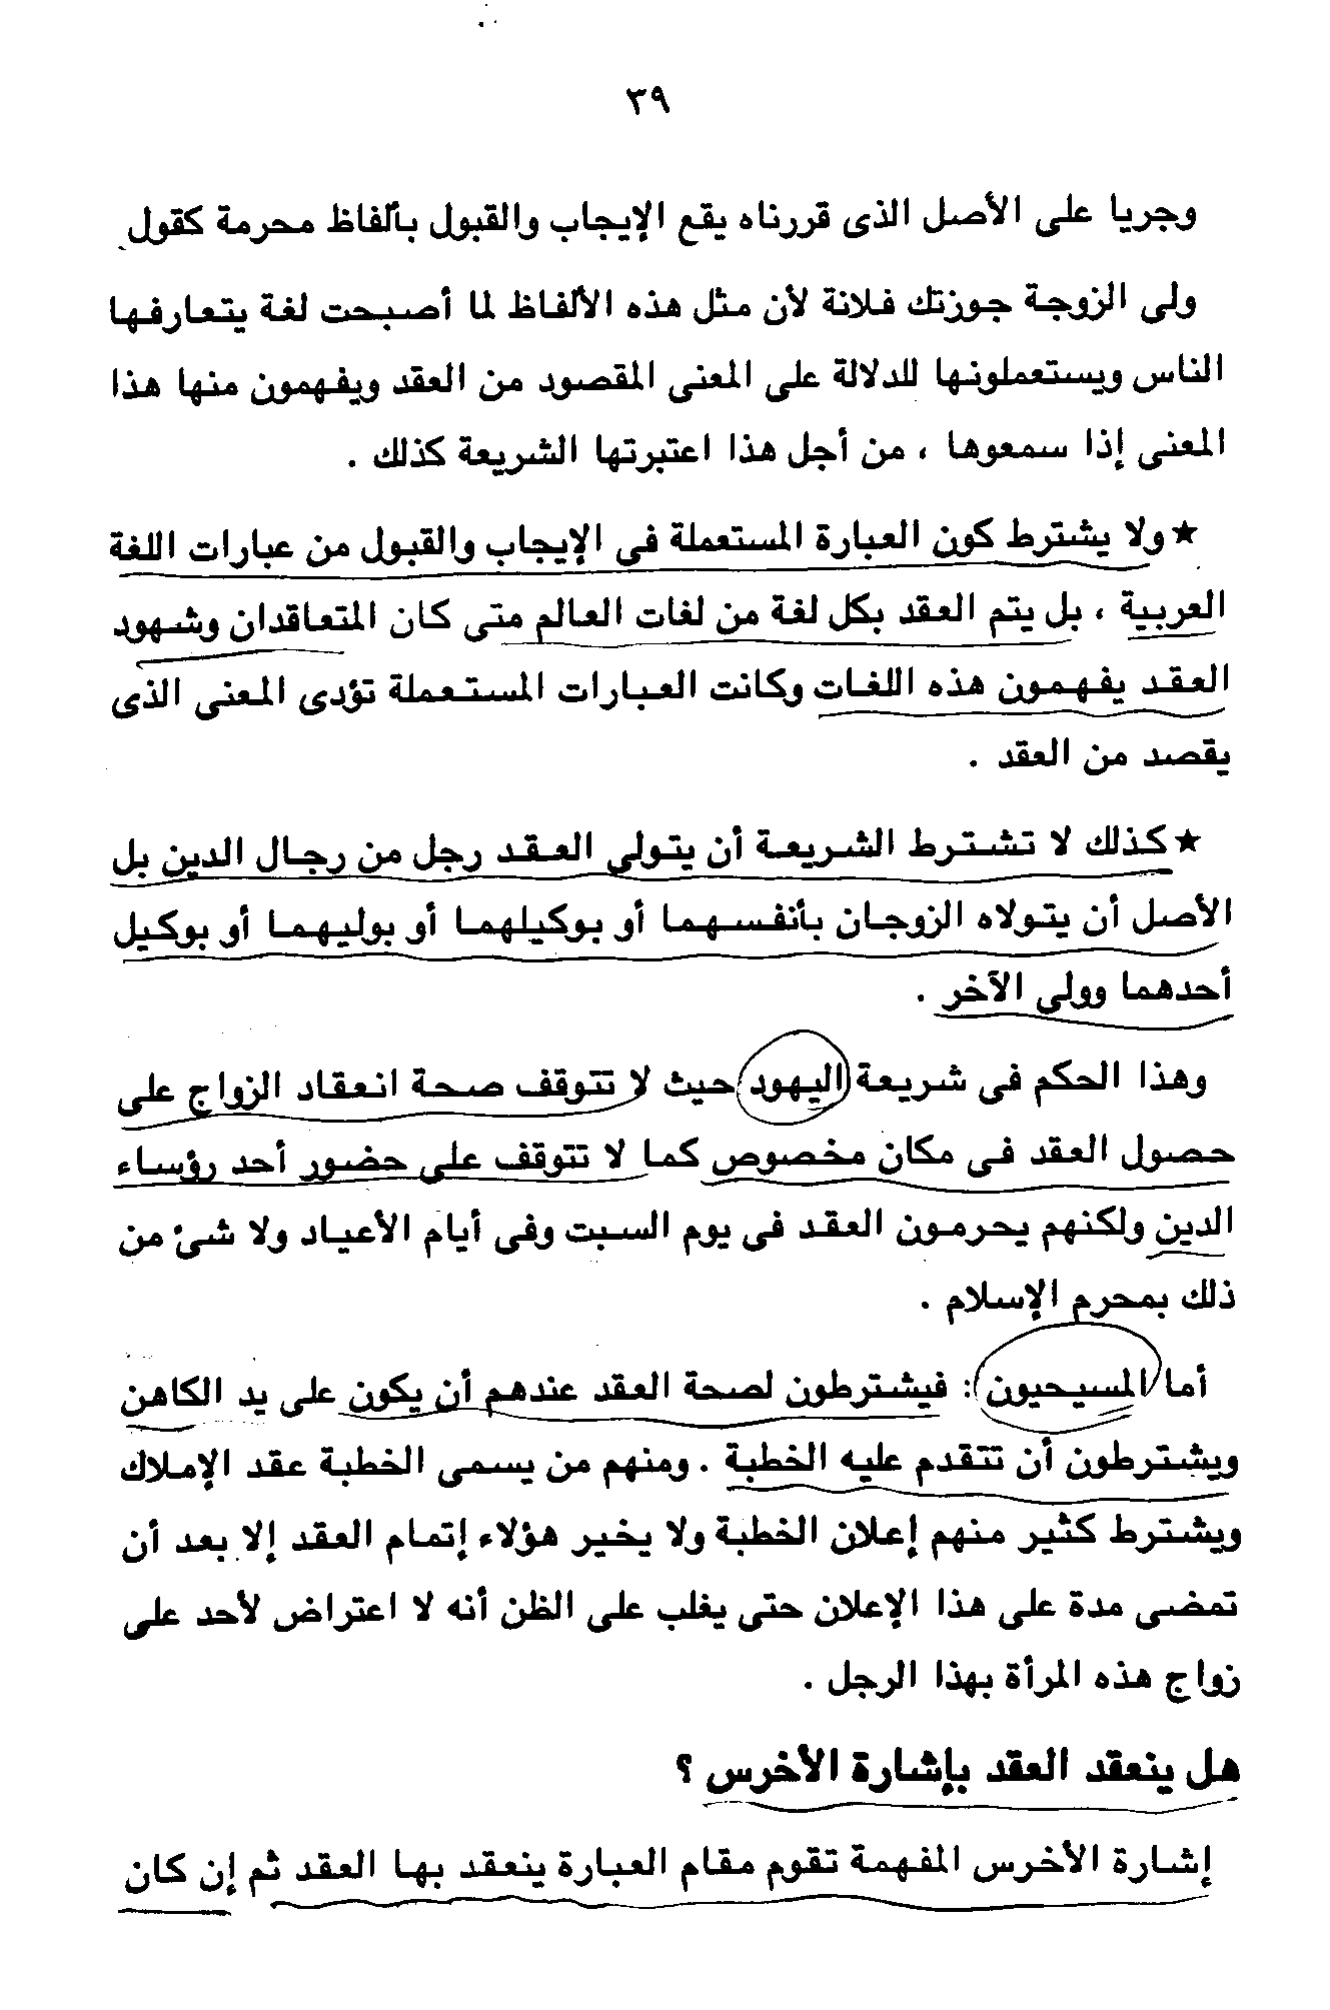 ٣٩
وجريا على الأصل الذى قررناه يقع الإيجاب والقبول بألفاظ محرمة كقول
ولى الزوجة جوزتك فلانة لأن مثل هذه الألفاظ لما أصبحت لغة يتعارفها
الناس ويستعملونها للدلالة على المعنى المقصود من العقد ويفهمون منها هذا
المعنى إذا سمعوها ، من أجل هذا اعتبرتها الشريعة كذلك .
★ ولا يشترط كون العبارة المستعملة فى الإيجاب والقبول من عبارات اللغة
العربية ، بل يتم العقد بكل لغة من لغات العالم متى كان المتعاقدان وشهود
العقد يفهمون هذه اللغات وكانت العبارات المستعملة تؤدى المعنى الذى
يقصد من العقد .
★ كذلك لا تشترط الشريعة أن يتولى العقد رجل من رجال الدين بل
الأصل أن يتولاه الزوجان بأنفسهما أو بوكيلهما أو بوليهما أو بوكيل
أحدهما وولى الآخر .
وهذا الحكم فى شريعة اليهود حيث لا تتوقف صحة انعقاد الزواج على
حصول العقد فى مكان مخصوص كما لا تتوقف على حضور أحد رؤساء
الدين ولكنهم يحرمون العقد فى يوم السبت وفى أيام الأعياد ولا شئ من
ذلك بمحرم الإسلام .
أما المسيحيون : فيشترطون لصحة العقد عندهم أن يكون على يد الكاهن
ويشترطون أن تتقدم عليه الخطبة . ومنهم من يسمى الخطبة عقد الإملاك
ويشترط كثير منهم إعلان الخطبة ولا يخير هؤلاء إتمام العقد إلا بعد أن
تمضى مدة على هذا الإعلان حتى يغلب على الظن أنه لا اعتراض لأحد على
زواج هذه المرأة بهذا الرجل .
هل ينعقد العقد بإشارة الأخرس ؟
إشارة الأخرس المفهمة تقوم مقام العبارة ينعقد بها العقد ثم إن كان